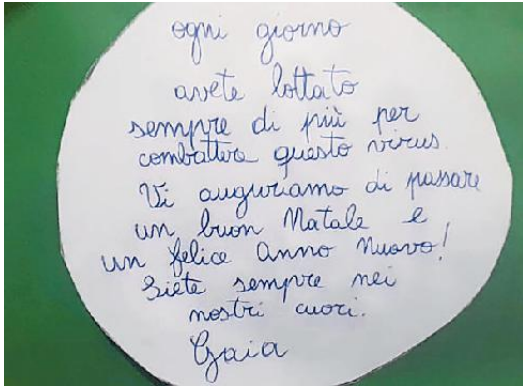 ogni giorno
avete lottato
sempre di più per
combattere questo virus.
Vi auguriamo di passare
un buon Natale e
un felice anno nuovo!
Siete sempre nei
nostri cuori.
Gaia